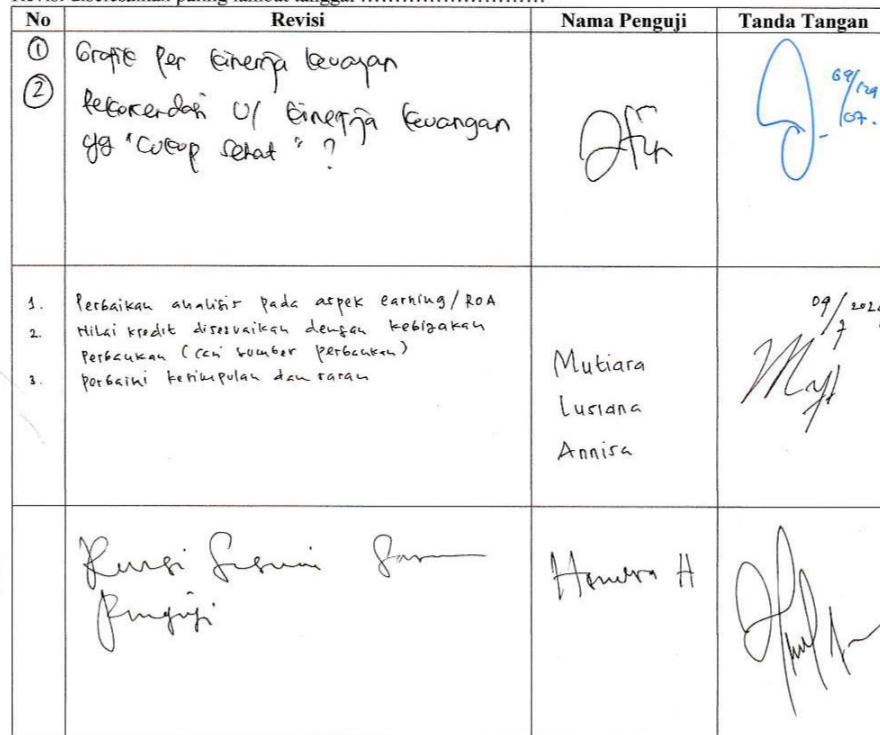 Revisi diselesaikan paling lambat tanggal ..............................
No Revisi Nama Penguji Tanda Tangan
① Grafik per kinerja keuangan
② Rekomendasi U/ kinerja keuangan
yg "cukup sehat" ?
09/
07.
1. Perbaikan analisis pada aspek earning/ROA
2. Nilai kredit disesuaikan dengan kebijakan
perbankan (cari sumber perbankan)
3. perbaiki kesimpulan dan saran
Mutiara
Lusiana
Annisa
09/7 2024
Revisi Sesuai Saran
Penguji
H